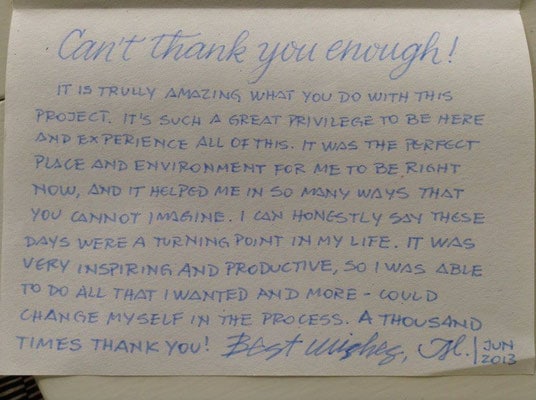 Can't thank you enough!
IT IS TRULLY AMAZING WHAT YOU DO WITH THIS
PROJECT. IT'S SUCH A GREAT PRIVILEGE TO BE HERE
AND EXPERIENCE ALL OF THIS. IT WAS THE PERFECT
PLACE AND ENVIRONMENT FOR ME TO BE RIGHT
NOW, AND IT HELPED ME IN SO MANY WAYS THAT
YOU CANNOT IMAGINE. I CAN HONESTLY SAY THESE
DAYS WERE A TURNING POINT IN MY LIFE. IT WAS
VERY INSPIRING AND PRODUCTIVE, SO I WAS ABLE
TO DO ALL THAT I WANTED AND MORE - COULD
CHANGE MYSELF IN THE PROCESS. A THOUSAND
TIMES THANK YOU! Best wishes, | JUN
2013